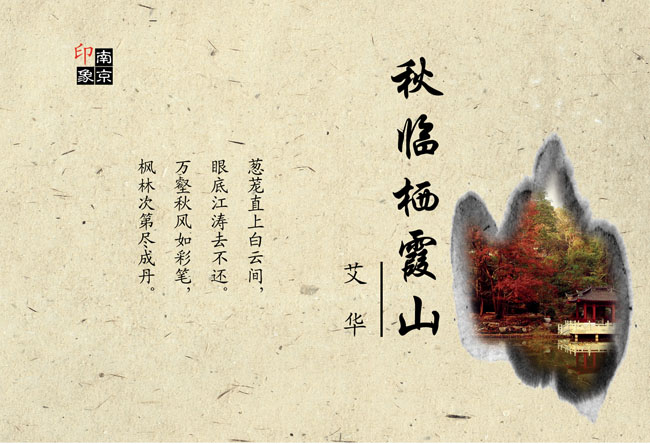 秋临栖霞山
艾华
葱茏直上白云间，
眼底江涛去不还。
万壑秋风如彩笔，
枫林次第尽成丹。
南京
印象